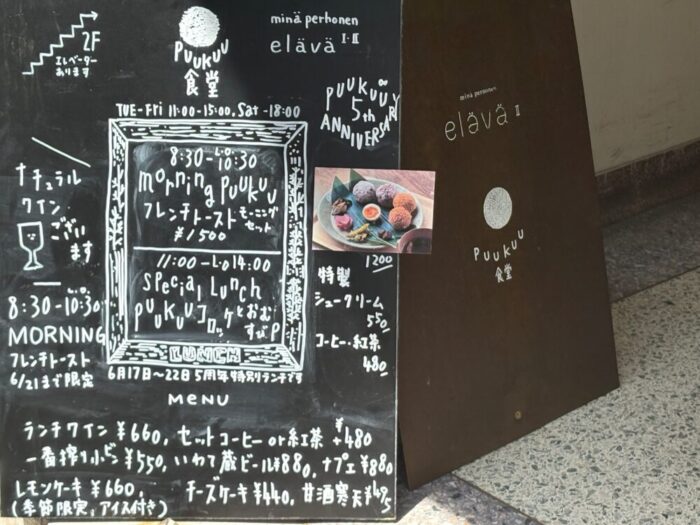 2F
エレベーター
あります
PUUKUU
食堂
minä perhonen
elävä I・II
PUUKUU
5th
ANNIVERSARY
TUE-Fri 11:00-15:00, Sat -18:00
ナチュラル
ワイン
ござい
ます
8:30-L.O.10:30
morning PUUKUU
フレンチトースト モーニング
セット
¥1500
11:00-L.O14:00
Special Lunch
PUUKUUコロッケとおむ
すびP
LUNCH
6月17日〜22日 5周年特別ランチです
8:30-L.O.10:30
MORNING
フレンチトースト
6/21まで限定
1200
特製
シュークリーム
550
コーヒー・紅茶
480
MENU
ランチワイン ¥660, セットコーヒー or 紅茶 +¥480
一番搾り小ビン ¥550, いわて蔵ビール¥880, ナプエ ¥880
レモンケーキ ¥660, チーズケーキ ¥440, 甘酒寒天
(季節限定,アイス付き)
minä perhonen
elävä II
PUUKUU
食堂